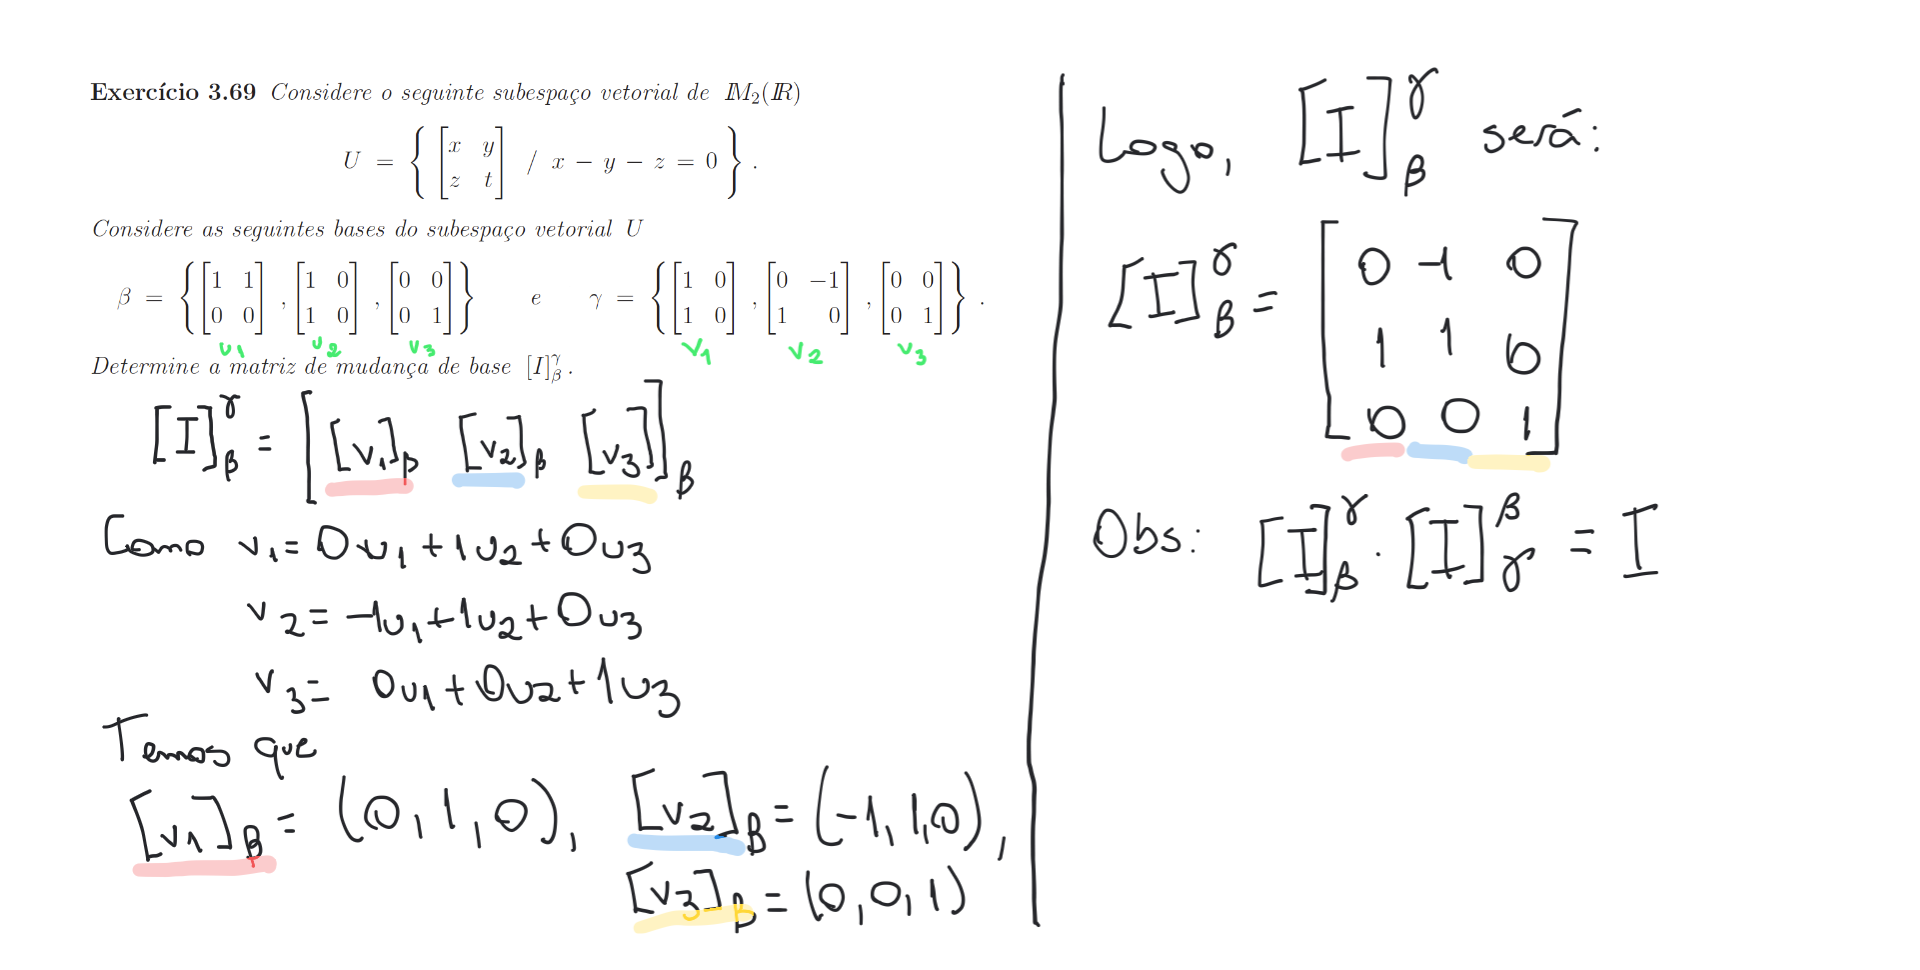 Exercício 3.69 Considere o seguinte subespaço vetorial de IM₂(IR)
U = { [x y; z t] / x − y − z = 0 } .
Considere as seguintes bases do subespaço vetorial U
β = { [1 1; 0 0] , [1 0; 1 0] , [0 0; 0 1] } e γ = { [1 0; 1 0] , [0 −1; 1 0] , [0 0; 0 1] } .
u1 u2 u3 v1 v2 v3
Determine a matriz de mudança de base [I]^γ_β .
[I]^γ_β = [ [v1]_β [v2]_β [v3] ]_β
Como v1 = 0u1 + 1u2 + 0u3
v2 = -1u1 + 1u2 + 0u3
v3 = 0u1 + 0u2 + 1u3
Temos que
[v1]_β = (0,1,0), [v2]_β = (-1,1,0),
[v3]_β = (0,0,1)
Logo, [I]^γ_β será:
[I]^γ_β = [0 -1 0; 1 1 0; 0 0 1]
Obs: [I]^γ_β · [I]^β_γ = I